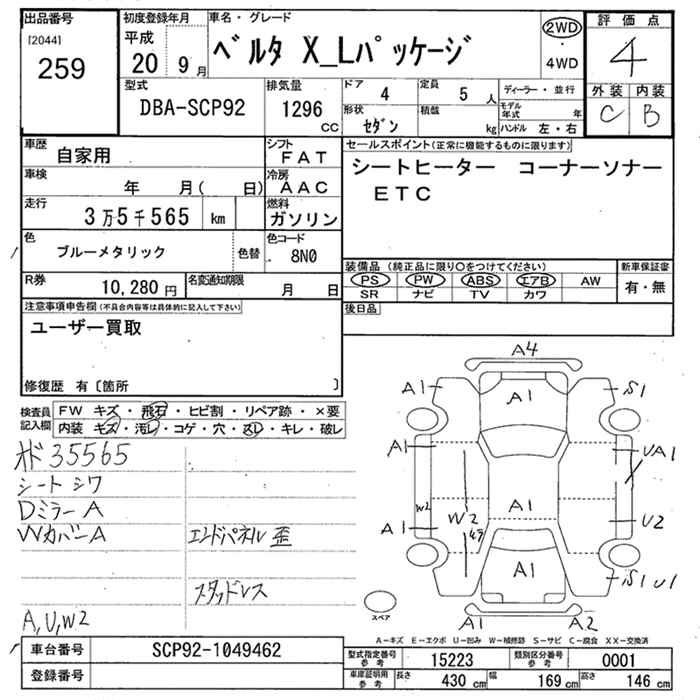 出品番号
[2044]
259
初度登録年月
平成
20 9 月
車名・グレード
ベルタ X_Lパッケージ
2WD
・
4WD
評価点
4
外装 内装
C B
型式
DBA-SCP92
排気量
1296
CC
ドア
4
定員
5 人
形状
セダン
積載
kg
ディーラー・並行
モデル年式 年
ハンドル 左・右
車歴
自家用
シフト
FAT
車検
年 月( 日)
冷房
AAC
走行
3万5千565 km
燃料
ガソリン
色
ブルーメタリック
色替
色コード
8N0
R券
10,280 円
名変通知期限
月 日
セールスポイント(正常に機能するものに限ります)
シートヒーター コーナーソナー
ETC
装備品 (純正品に限り○をつけてください)
PS PW ABS エアB AW
SR ナビ TV カワ
新車保証書
有・無
後日品
注意事項申告欄(不具合内容等は具体的に記入して下さい)
ユーザー買取
修復歴 有〔箇所 〕
検査員記入欄
FW キズ・飛石・ヒビ割・リペア跡・×要
内装 キズ・汚レ・コゲ・穴・スレ・キレ・破レ
オド 35565
シート シワ
DミラーA
WカバーA
エンドパネル 歪
スタッドレス
A,U,W2
A4
A1
A1
S1
A1
UA1
W2
W2
A1
A1
U2
A1
S1 U1
A1
A2
スペア
A－キズ E－エクボ U－凹み W－補修跡 S－サビ C－腐食 XX－交換済
車台番号
SCP92-1049462
登録番号
型式指定番号
参考
15223
類別区分番号
参考
0001
車庫証明用
参考
長さ 430 cm
幅 169 cm
高さ 146 cm